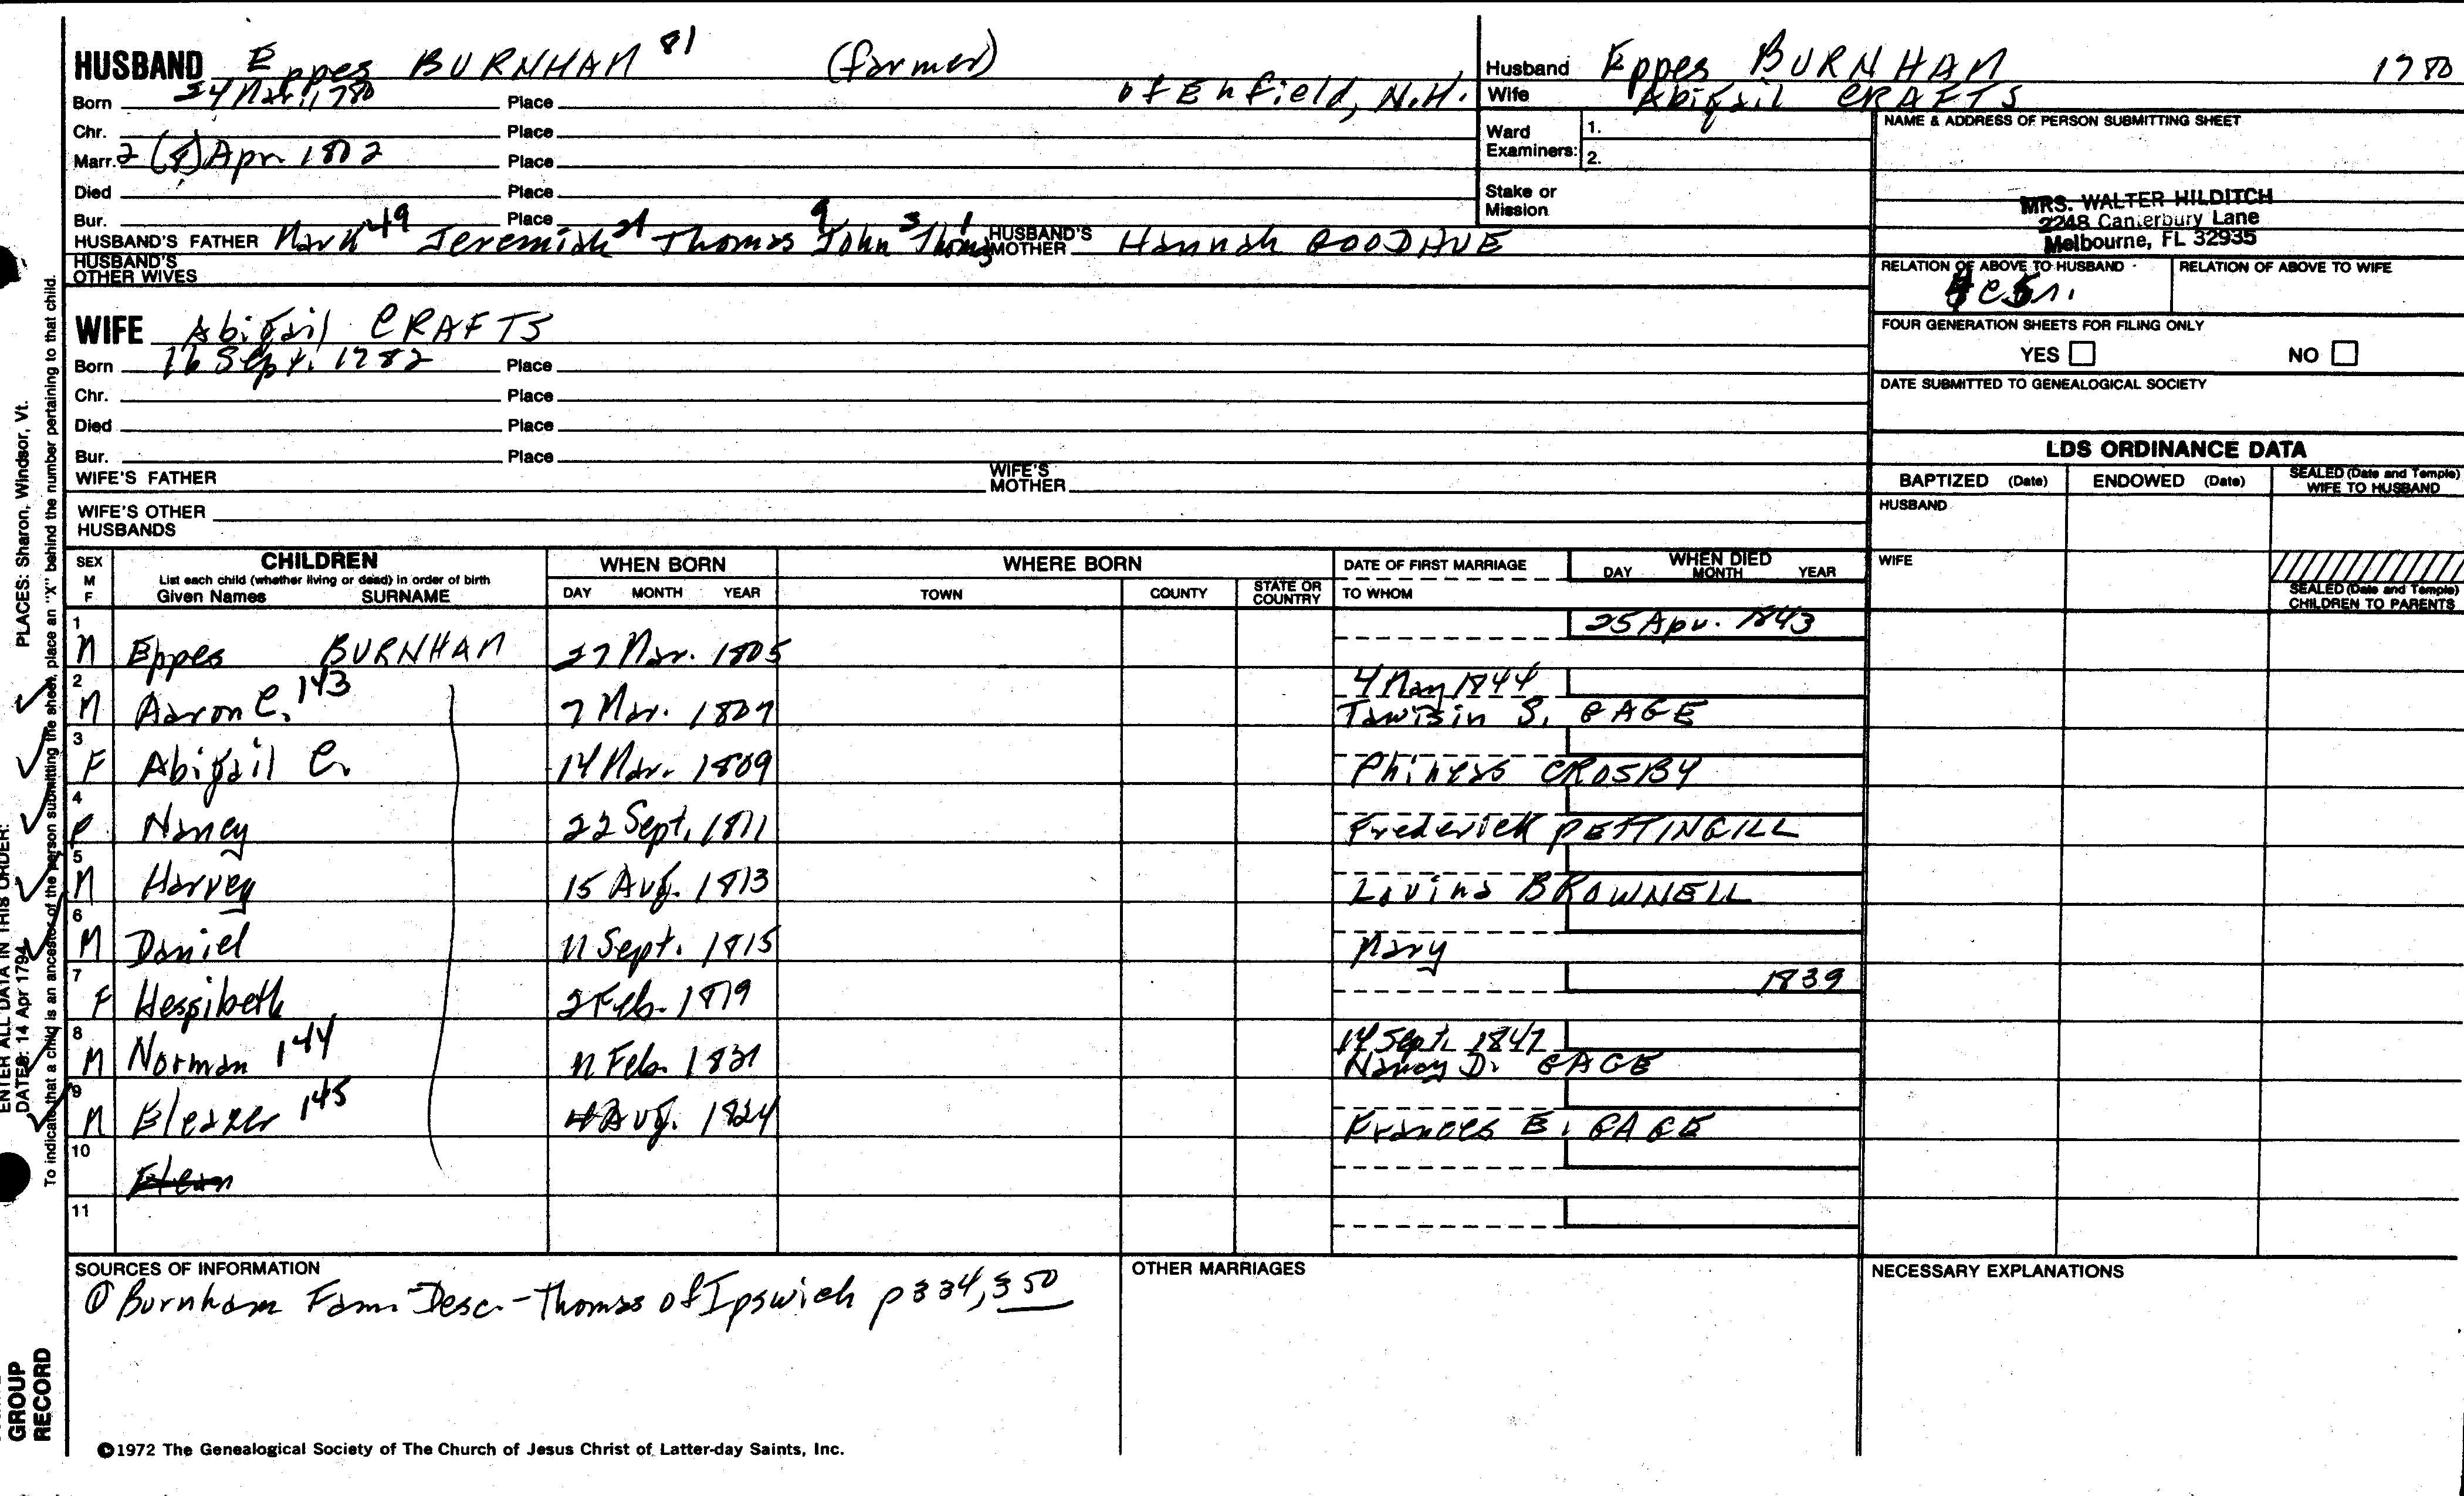 HUSBAND Eppes BURNHAM 81 (farmer)
Born 24 Mar. 1780 Place of Enfield, N.H.
Chr. Place
Marr. 2 (8) Apr 1802 Place
Died Place
Bur. Place
HUSBAND'S FATHER Mark 49 Jeremiah 21 Thomas 9 John 3 Thomas 1 HUSBAND'S MOTHER Hannah GOODHUE
HUSBAND'S OTHER WIVES
WIFE Abigail CRAFTS
Born 16 Sept. 1782 Place
Chr. Place
Died Place
Bur. Place
WIFE'S FATHER WIFE'S MOTHER
WIFE'S OTHER HUSBANDS
Husband Eppes BURNHAM 1780
Wife Abigail CRAFTS
Ward Examiners: 1. 2.
Stake or Mission
NAME & ADDRESS OF PERSON SUBMITTING SHEET
MRS. WALTER HILDITCH
2248 Canterbury Lane
Melbourne, FL 32935
RELATION OF ABOVE TO HUSBAND RELATION OF ABOVE TO WIFE
FOUR GENERATION SHEETS FOR FILING ONLY
YES NO
DATE SUBMITTED TO GENEALOGICAL SOCIETY
LDS ORDINANCE DATA
BAPTIZED (Date) ENDOWED (Date) SEALED (Date and Temple) WIFE TO HUSBAND
HUSBAND
WIFE
SEALED (Date and Temple) CHILDREN TO PARENTS
SEX M F CHILDREN List each child (whether living or dead) in order of birth Given Names SURNAME WHEN BORN DAY MONTH YEAR WHERE BORN TOWN COUNTY STATE OR COUNTRY DATE OF FIRST MARRIAGE TO WHOM WHEN DIED DAY MONTH YEAR
1 M Eppes BURNHAM 27 Mar. 1805 25 Apr. 1843
2 M Aaron C. 143 7 Mar. 1807 4 May 1844 S. GAGE
3 F Abigail C. 14 Mar. 1809 Phineas CROSBY
4 F Nancy 22 Sept. 1811 Frederick PETTINGILL
5 M Harvey 15 Aug. 1813 Lovina BROWNELL
6 M Daniel 11 Sept. 1815 Mary
7 F Hespibeth 2 Feb. 1819 1839
8 M Norman 144 11 Feb. 1821 14 Sept. 1847 Nancy D. GAGE
9 M Eleazer 145 4 Aug. 1824 Frances E. GAGE
10 Elean
11
SOURCES OF INFORMATION
① Burnham Fam. Desc.-Thomas of Ipswich p334, 350
OTHER MARRIAGES
NECESSARY EXPLANATIONS
©1972 The Genealogical Society of The Church of Jesus Christ of Latter-day Saints, Inc.
GROUP RECORD
ENTER ALL DATA IN THIS ORDER:
DATES: 14 Apr 1794 PLACES: Sharon, Windsor, Vt.
To indicate that a child is an ancestor of the person submitting the sheet, place an "X" behind the number pertaining to that child.